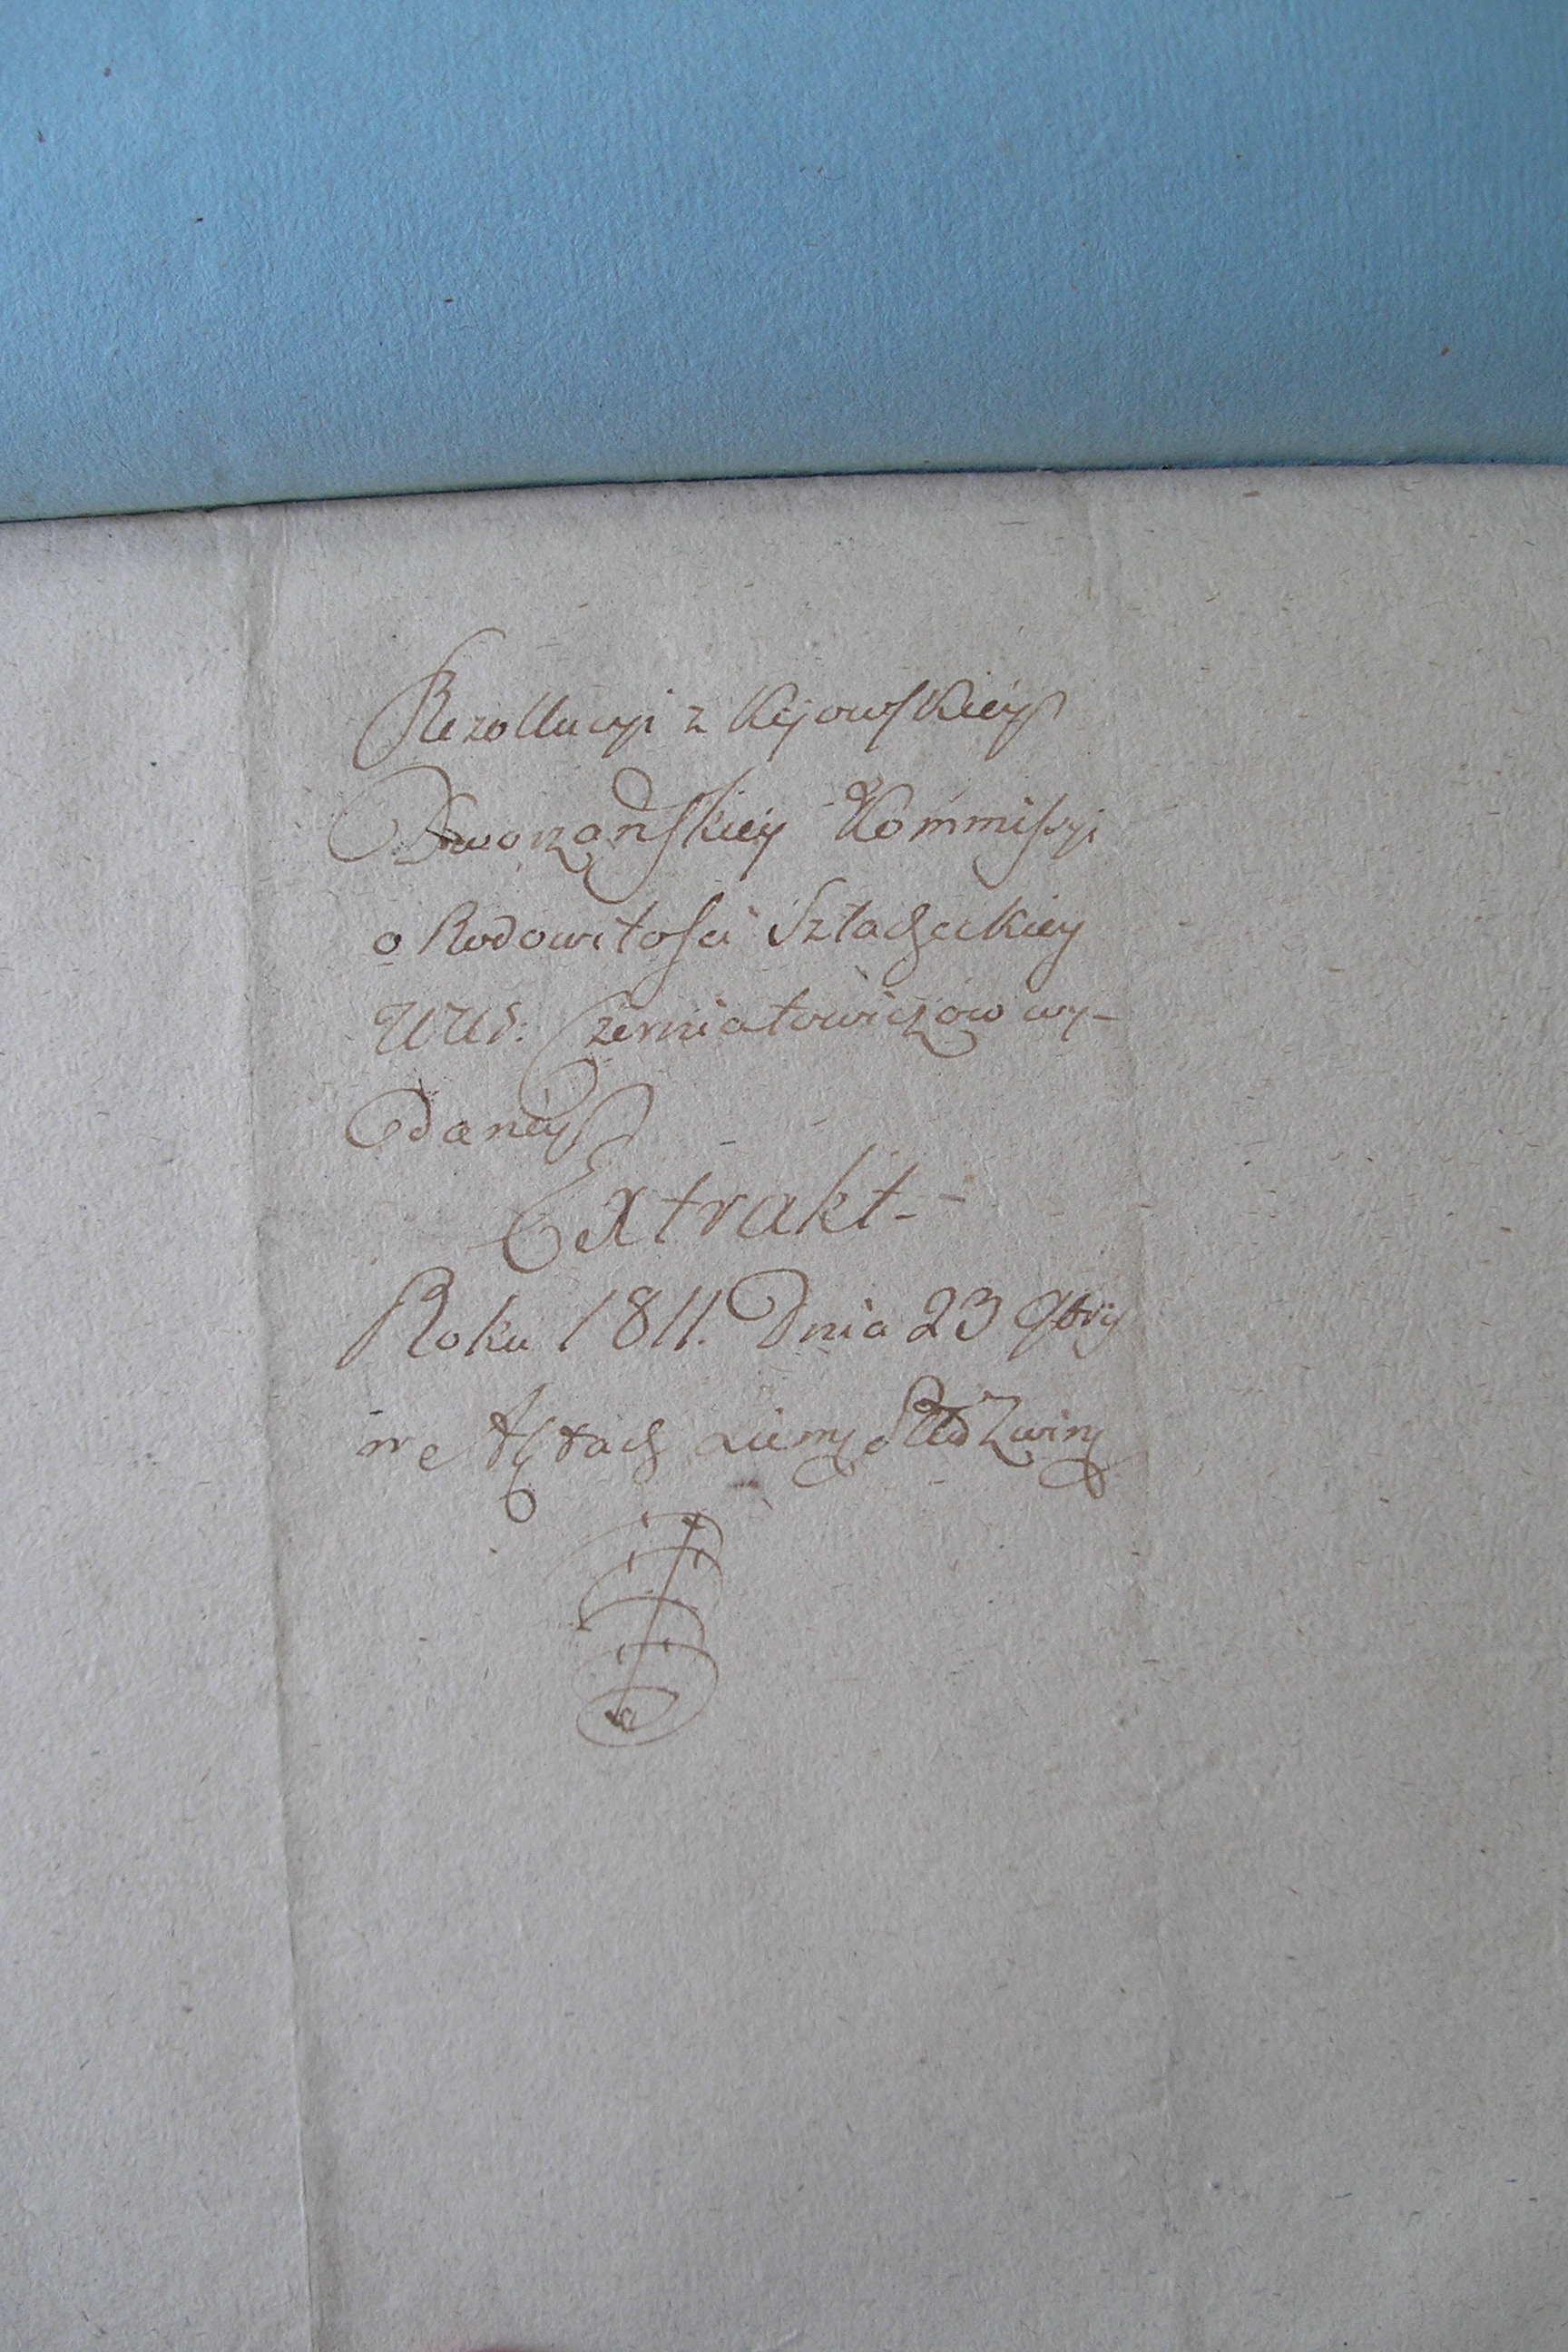 Rezollucyi z Kijowskiéy
Dworzańskiey Kommissyi
o Rodowitości Szlacheckiey
WW: Czerniatowiczow wy-
danéy
Extrakt -
Roku 1811. Dnia 23 9bry
we Aktach Ziems